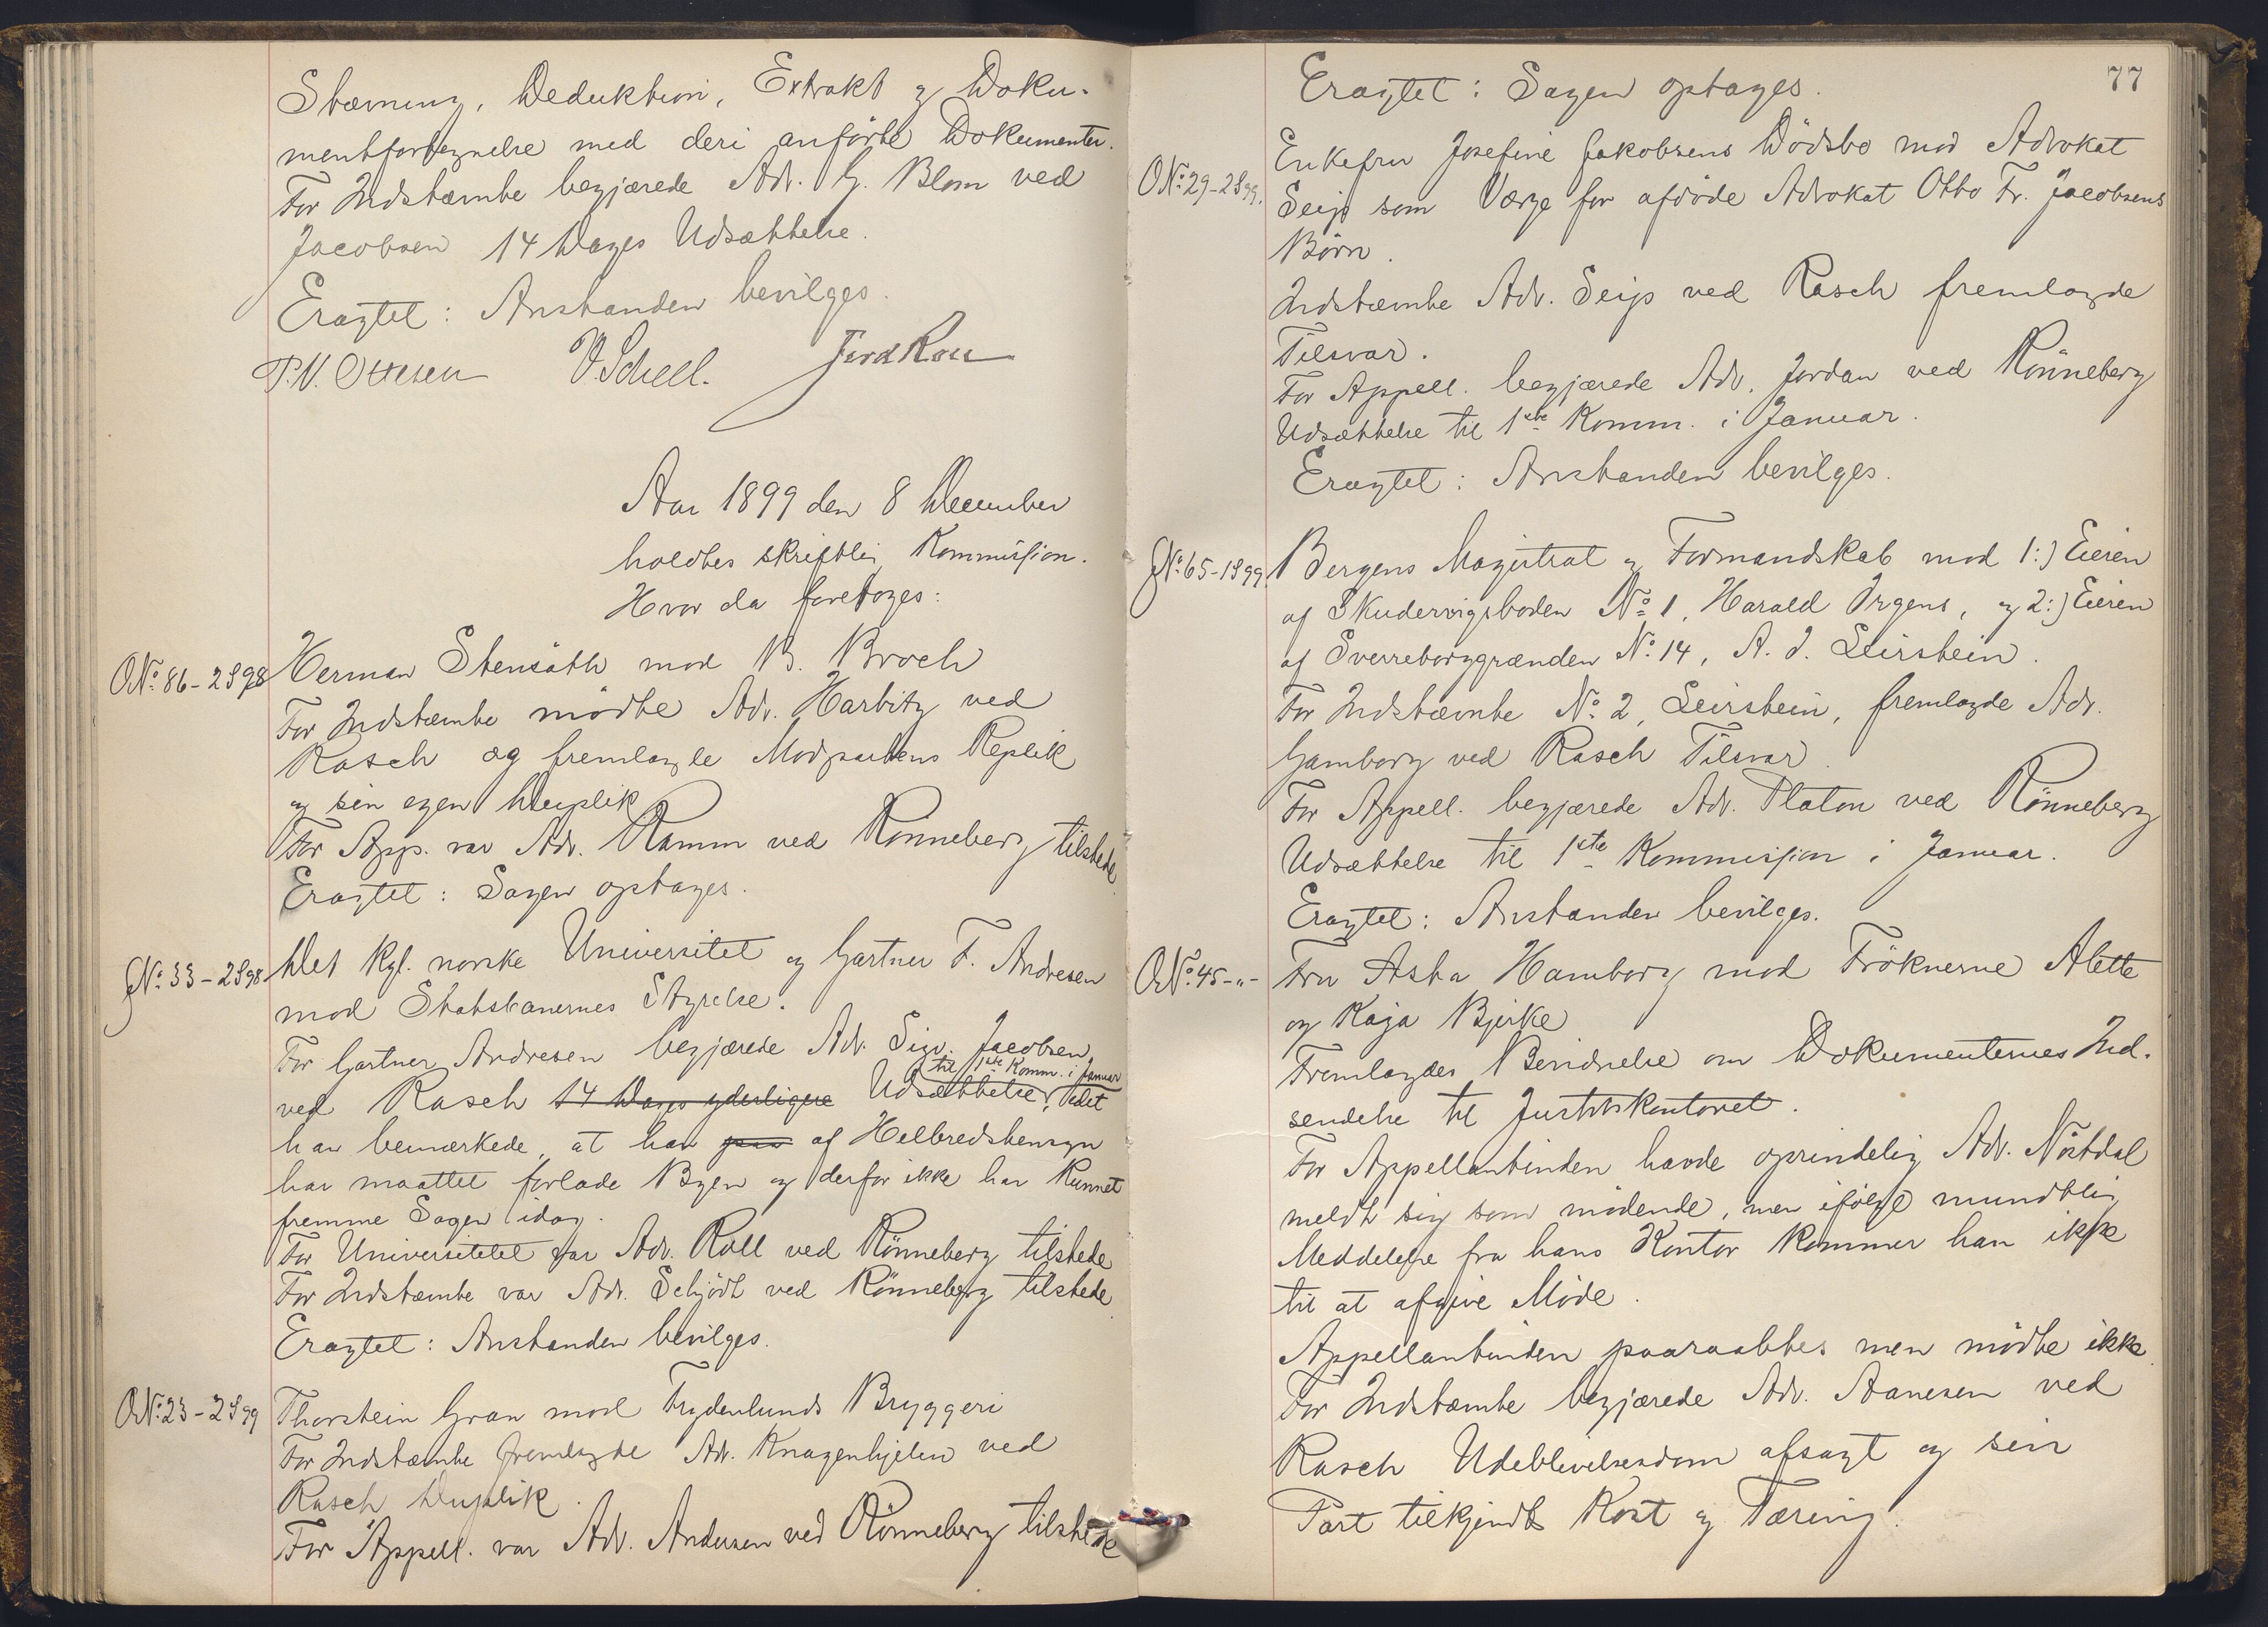 Stævning, Deduktion, Extrakt og Doku-
mentfortegnelse med deri anførte Dokumenter.
For Indstævnte begjærede Adv. G. Blom ved
Jacobsen 14 Dages Udsættelse.
Eragtet: Anstanden bevilges.
P.N. Ottesen V. Schell.
Aar 1899 den 8 December
holdtes skriftlig Kommission.
Hvor da foretoges:
ONo: 86-2S98 Herman Stensäth mod B. Broch
For Indstævnte mödte Adv. Harbitz ved
Rasch og fremlagde Modpartens Replik
og sin egen Duplik
For App. var Adv. Ramm ved Rönneberg tilstede
Eragtet: Sagen optages.
No: 33-2S98 Det kgl. norske Universitet og Gartner F. Andresen
mod Statsbanernes Styrelse.
For Gartner Andresen begjærede Adv. Sigv. Jacobsen
til 1ste Komm. i Januar
ved Rasch 14 Dages yderligere Udsættelse, idet
han bemærkede, at han paa af Helbredshensyn
har maattet forlade Byen og derfor ikke har kunnet
fremme Sagen idag.
For Universitetet var Adv. Roll ved Rönneberg tilstede
For Indstævnte var Adv. Schjödt ved Rönneberg tilstede
Eragtet: Anstanden bevilges.
ONo: 23-2S99 Thorstein Gran mod Frydenlunds Bryggeri
For Indstævnte fremlagde Adv. Knagenhjelm ved
Rasch Duplik.
For Appell. var Adv. Andersen ved Rönneberg tilstede
77
Eragtet: Sagen optages.
ONo: 29-2S99. Enkefru Josefine Jakobsens Dödsbo mod Advokat
Seip som Værge for afdöde Advokat Otto Fr. Jacobsens
Börn.
Indstævnte Adv. Seip ved Rasch fremlagde
Tilsvar.
For Appell. begjærede Adv. Jordan ved Rönneberg
Udsættelse til 1ste Komm. i Januar.
Eragtet: Anstanden bevilges.
No: 65-1S99. Bergens Magistrat og Formandskab mod 1:) Eieren
af Skudervigsboden No 1, Harald Irgens, og 2:) Eieren
af Sverreborggrænden No 14, A. J. Leirstein.
For Indstævnte No 2, Leirstein, fremlagde Adv.
Gamborg ved Rasch Tilsvar.
For Appell. begjærede Adv. Platou ved Rönneberg
Udsættelse til 1ste Kommission i Januar.
Eragtet: Anstanden bevilges.
ONo: 45-"- Fru Asta Hamborg mod Fröknerne Alette
og Kaja Bjerke
Fremlagdes Bevidnelse om Dokumenternes Ind-
sendelse til Justitskontoret.
For Appellantinden havde oprindelig Adv. Nöstdal
meldt sig som mödende, men ifölge mundtlig
Meddelelse fra hans Kontor kommer han ikke
til at afgive Möde.
Appellantinden paaraabtes men mödte ikke.
For Indstævnte begjærede Adv. Aanesen ved
Rasch Udeblivelsesdom afsagt og sin
Part tilkjendt Kost og Tæring.